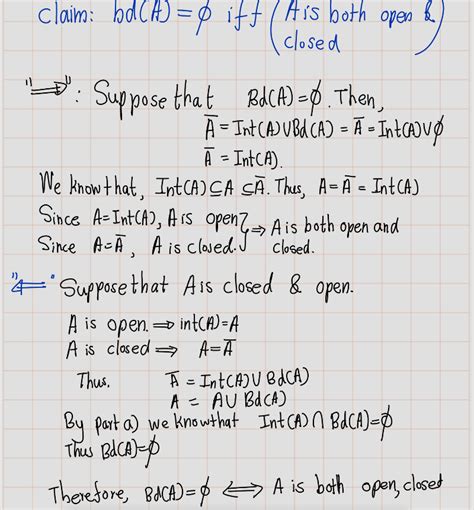 claim: bd(A) = ∅ iff (A is both open & closed)
"⟹": Suppose that Bd(A) = ∅. Then,
Ā = Int(A) ∪ Bd(A) = Ā = Int(A) ∪ ∅
Ā = Int(A).
We know that, Int(A) ⊆ A ⊆ Ā. Thus, A = Ā = Int(A)
Since A = Int(A), A is open } ⟹ A is both open and
Since A = Ā, A is closed. } closed.
"⟸" Suppose that A is closed & open.
A is open. ⟹ int(A) = A
A is closed ⟹ A = Ā
Thus. Ā = Int(A) ∪ Bd(A)
A = A ∪ Bd(A)
By part a) we know that Int(A) ∩ Bd(A) = ∅
Thus Bd(A) = ∅
Therefore, Bd(A) = ∅ ⟺ A is both open, closed